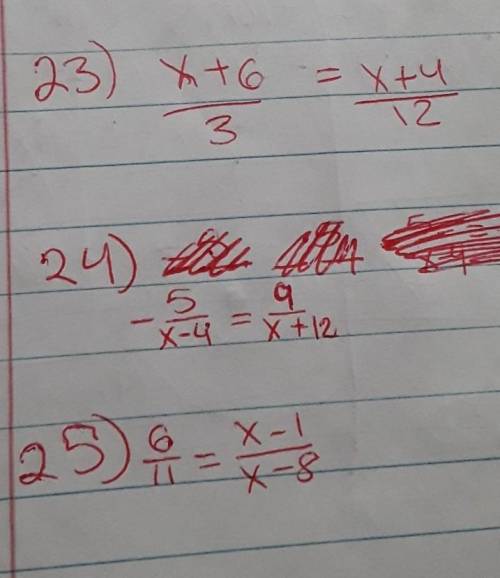 23) x+6/3 = x+4/12
24)
-5/x-4 = 9/x+12
25) 6/11 = x-1/x-8